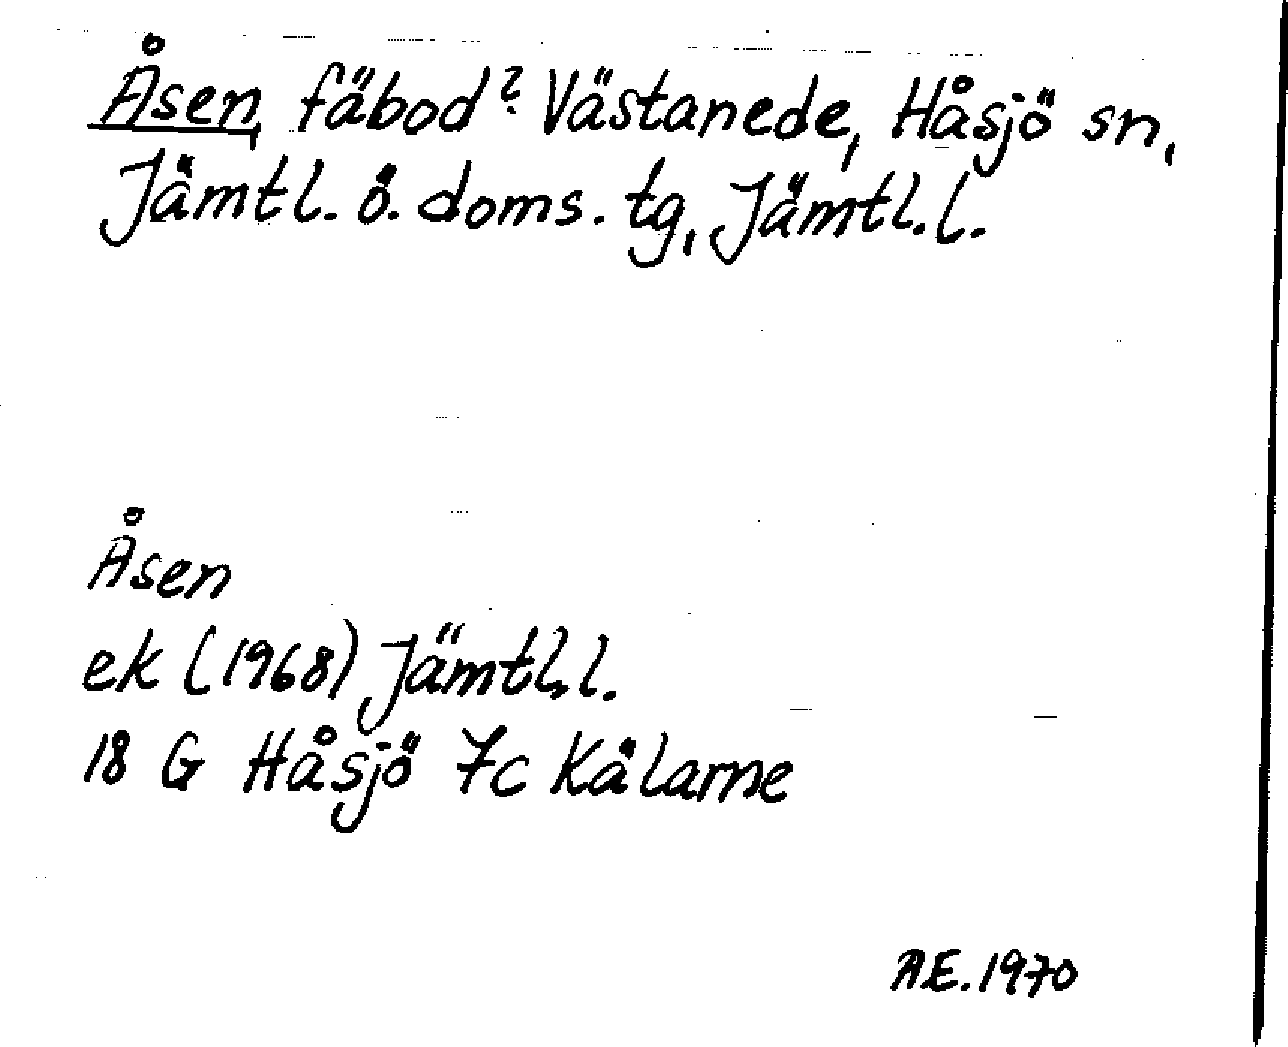 Åsen, fäbod? Västanede, Håsjö sn,
Jämtl. ö. doms. tg, Jämtl. l.
Åsen
ek (1968) Jämtl. l.
18 G Håsjö 7c Kälarne
AE. 1970